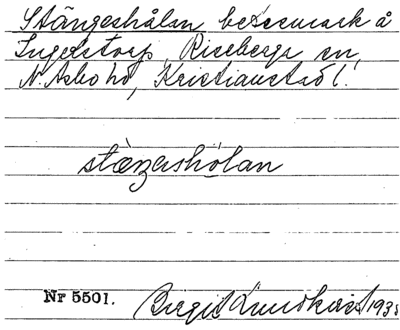 Stångeshålan betesmark å
Ingelstorp, Riseberga sn,
N. Åsbo hd, Kristianstads l.
stæŋashölan
Nr 5501.
Birgit Lundkvist 1935